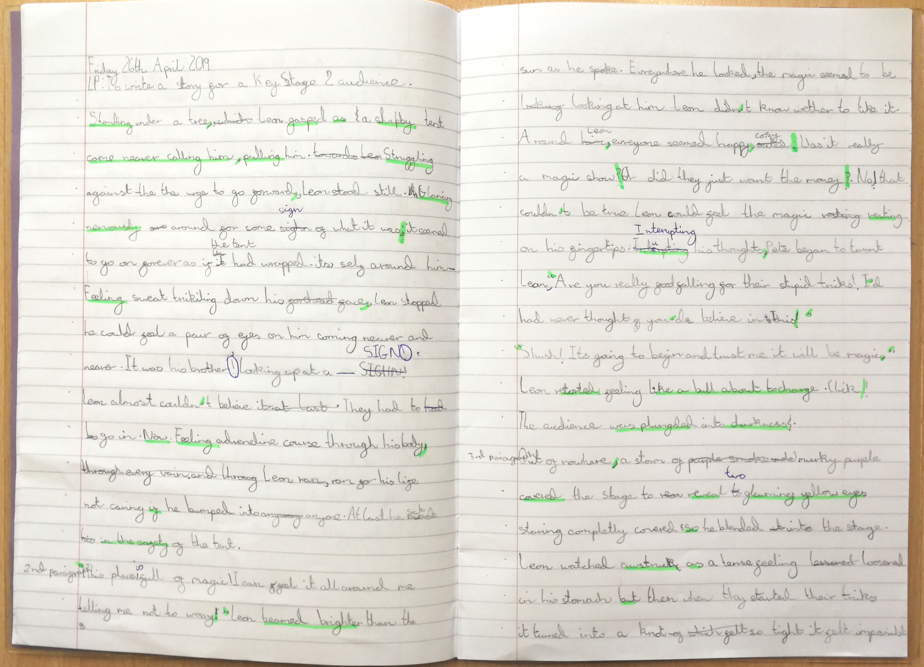 Friday 26th April 2019
LP: To write a story for a Key Stage 2 audience.
Standing under a tree, Leon gasped as a shabby tent
came nearer calling him, pulling him. Struggling
against the the urge to go forward, Leon stood still. Glancing
sign
nervously around for some of what it was, it seemed
the tent
to go on forever as if it had wrapped its self around him
Feeling sweat trikiling down his face, Leon stopped
he could feel a pair of eyes on him coming nearer and
SIGN!
nearer. It was his brother! looking up at a — SIGHN!
Leon almost couldn't believe it at last. They had to
go in. Now. Feeling adreneline course through his body,
through every vain and through Leon ran, ran for his life
not caring if he bumped into anyone. At last he
in the safety of the tent.
is
2nd paragraph "This place full of magic! I can feel it all around me
telling me not to worry!" Leon beamed brighter than the
sun as he spoke. Everywhere he looked, the magic seemed to be
looking looking at him Leon didn't know wether to like it.
Leon cosy
Around him, everyone seemed happy, ! Was it really
a magic show? Or did they just want the money?. No! that
couldn't be true Leon could feel the magic resting
Interupting
on his fingertips. his thought, Pete began to taunt
Leon, "Are you really falling for their stupid triks! I'd
had never thought of you do believe in this!"
"Shush! It's going to begin and trust me it will be magic,"
Leon started feeling like a bull about to charge. Clik!
The audience was plungded into darkness!.
3rd paragraph Out of nowhere, a storm of purple smoke murky purple
two
covered the stage to reveal gleaming yellow eyes
staring completly covered so he blended into the stage.
Leon watched as a tense feeling loosened
in his stomach but then when they started their triks
it turned into a knot of which felt so tight it felt impossible